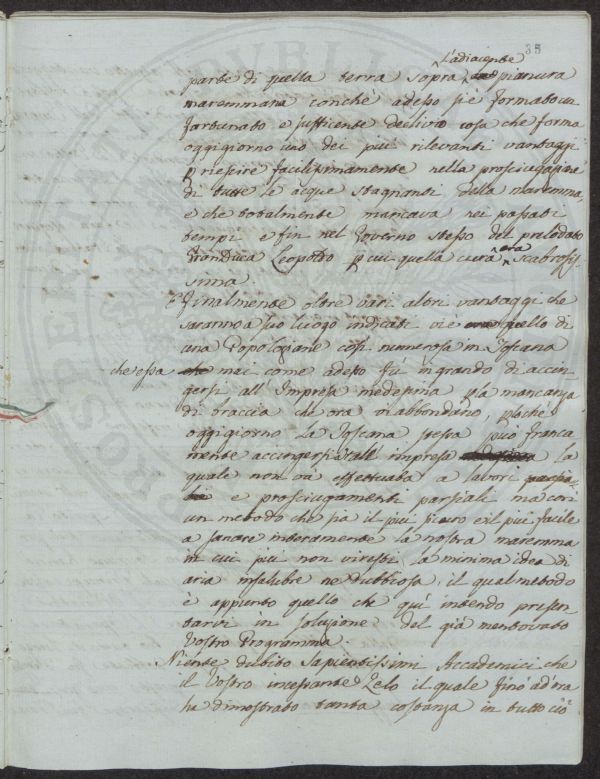 35
L'adiacente
parte di quella terra sopra pianura
maremmana conchè adesso si è formato un
fortunato e sufficente declivio cosa che forma
oggigiorno uno dei più rilevanti vantaggi
p riescire facilissimamente nella prosciugazione
di tutte le acque stagnanti della maremma,
e che totalmente mancava nei passati
tempi e fin nel Governo stesso del prelodato
Granduca Leopoldo p cui quella cura era scabrosis-
sima
Finalmente oltre vari altri vantaggi che
saranno a suo luogo indicati vi è quello di
una Popolazione così numerosa in Toscana
che essa mai come adesso fù in grando di accin-
gersi all'Impresa medesima p la mancanza
di braccia che ora vi abbondano, p lochè
oggigiorno la Toscana stessa può franca
mente accingersi all'impresa la
quale non và effettuata a lavori
e prosciugamenti parziali ma con
un metodo che sia il più sicuro ed il più facile
a sanare interamente la nostra maremma
in cui più non vi resti la minima idea di
aria insalubre ne dubbiosa, il qual metodo
è appunto quello che quì intendo presen
tarvi in soluzione del già mentovato
Vostro Programma.
Niente dubito Sapientissimi Accademici che
il Vostro incessante Zelo il quale fino ad'ora
ha dimostrato tanta costanza in tutto ciò